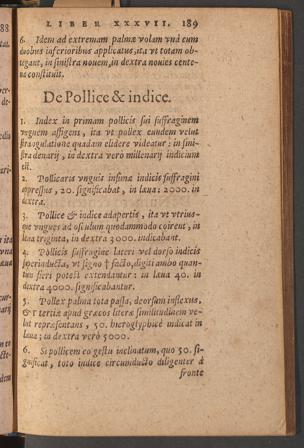 LIBER XXXVII. 189
6. Idem ad extremam palmæ volam vna cum
duobus inferioribus applicatus, ita vt totam ob-
tegant, in sinistra nouem, in dextra nouies cente-
na constituit.
De Pollice & indice.
1. Index in primam pollicis sui suffraginem
vnguem affigens, ita vt pollex eundem velut
strangulatione quadam elidere videatur: in sini-
stra denarij, in dextra verò millenarij indicium
est.
2. Pollicaris vnguis infimæ indicis suffragini
appressus, 20. significabat, in læua: 2000. in
dextra.
3. Pollice & indice adapertis, ita vt vtrius-
que vngues ad osculum quodammodo coirent, in
læua triginta, in dextra 3000. indicabant.
4. Pollicis suffragine lateri vel dorso indicis
superinducta, vt signo † facto, digiti ambo quan-
tum fieri potest extendantur: in læua 40. in
dextra 4000. significabantur.
5. Pollex palma tota passa, deorsum inflexus,
& tertiæ apud græcos literæ similitudinem ve-
lut repræsentans, 50. hieroglyphicè indicat in
læua: in dextra verò 5000.
6. Si pollicem eo gestu inclinatum, quo 50. si-
gnificat, toto indice circumducto diligenter à
fronte